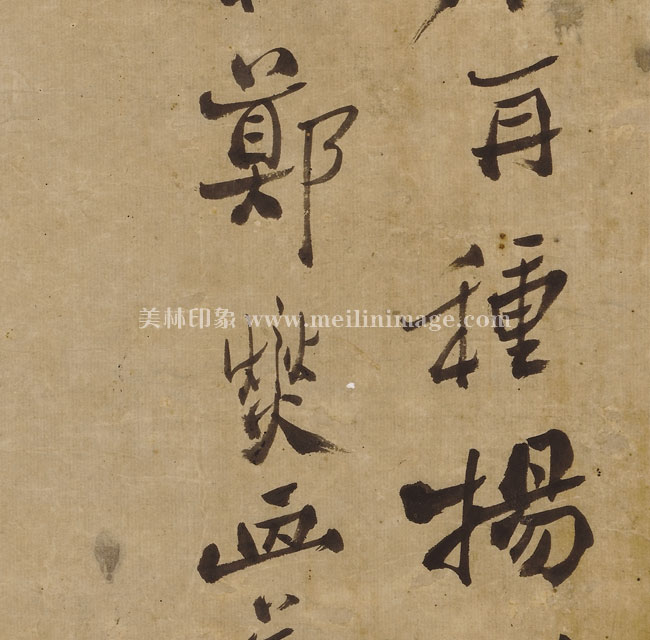 再種揚
鄭燮画
美林印象 www.meilinimage.com